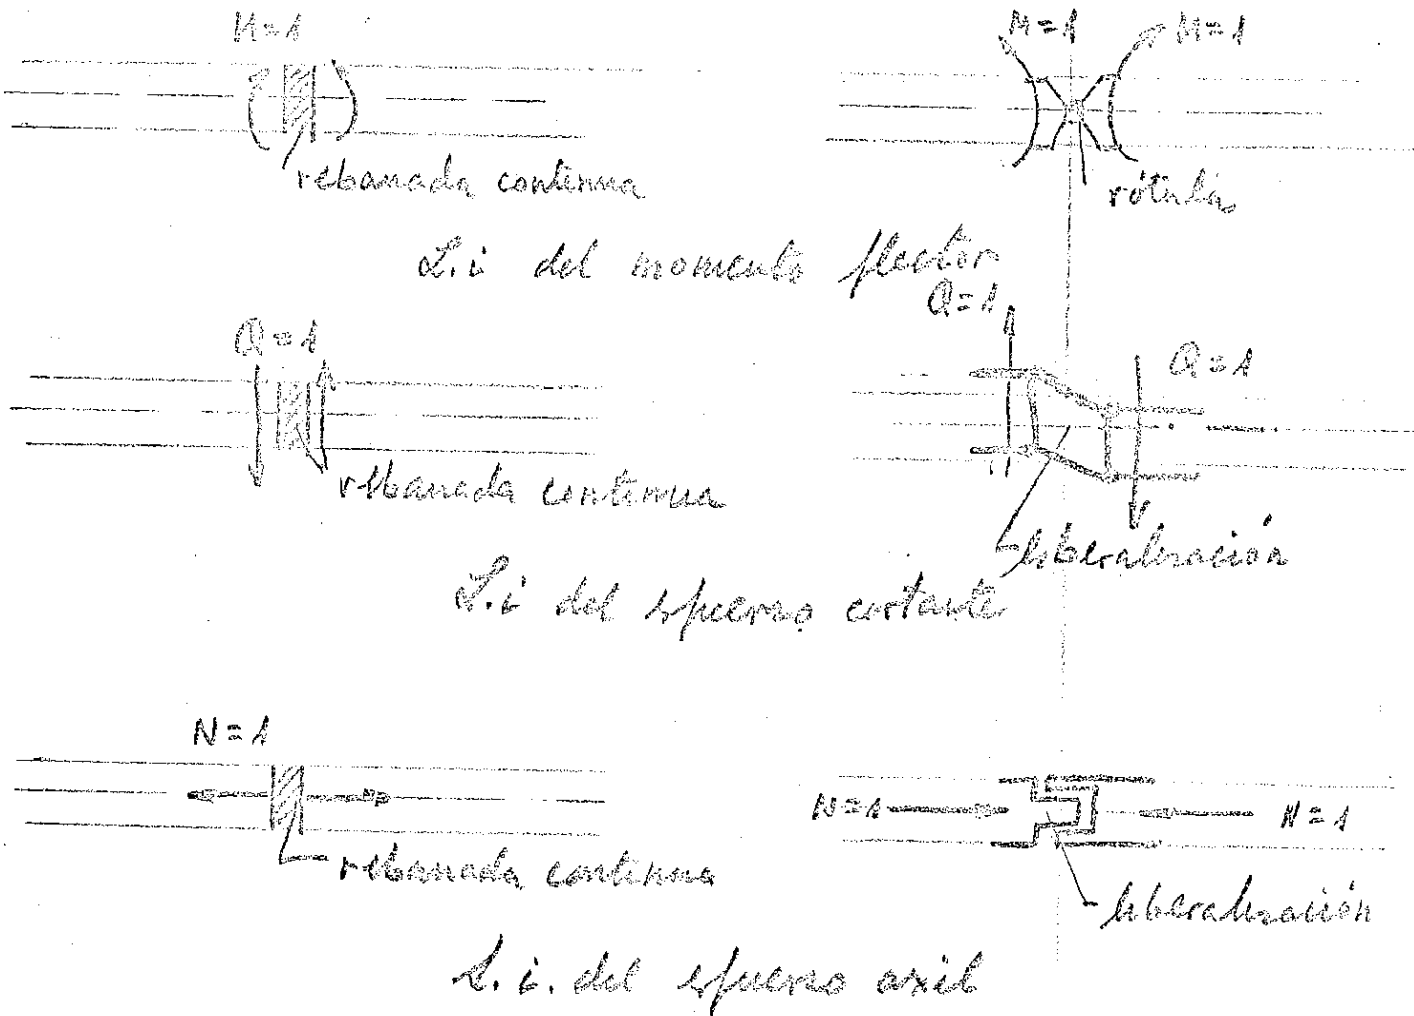 M=1
M=1 M=1
rebanada continua
rótula
L.i del momento flector
Q=1
Q=1
Q=1
rebanada continua
liberalización
L.i del esfuerzo cortante
N=1
N=1
N=1
rebanada continua
liberalización
L.i. del esfuerzo axil